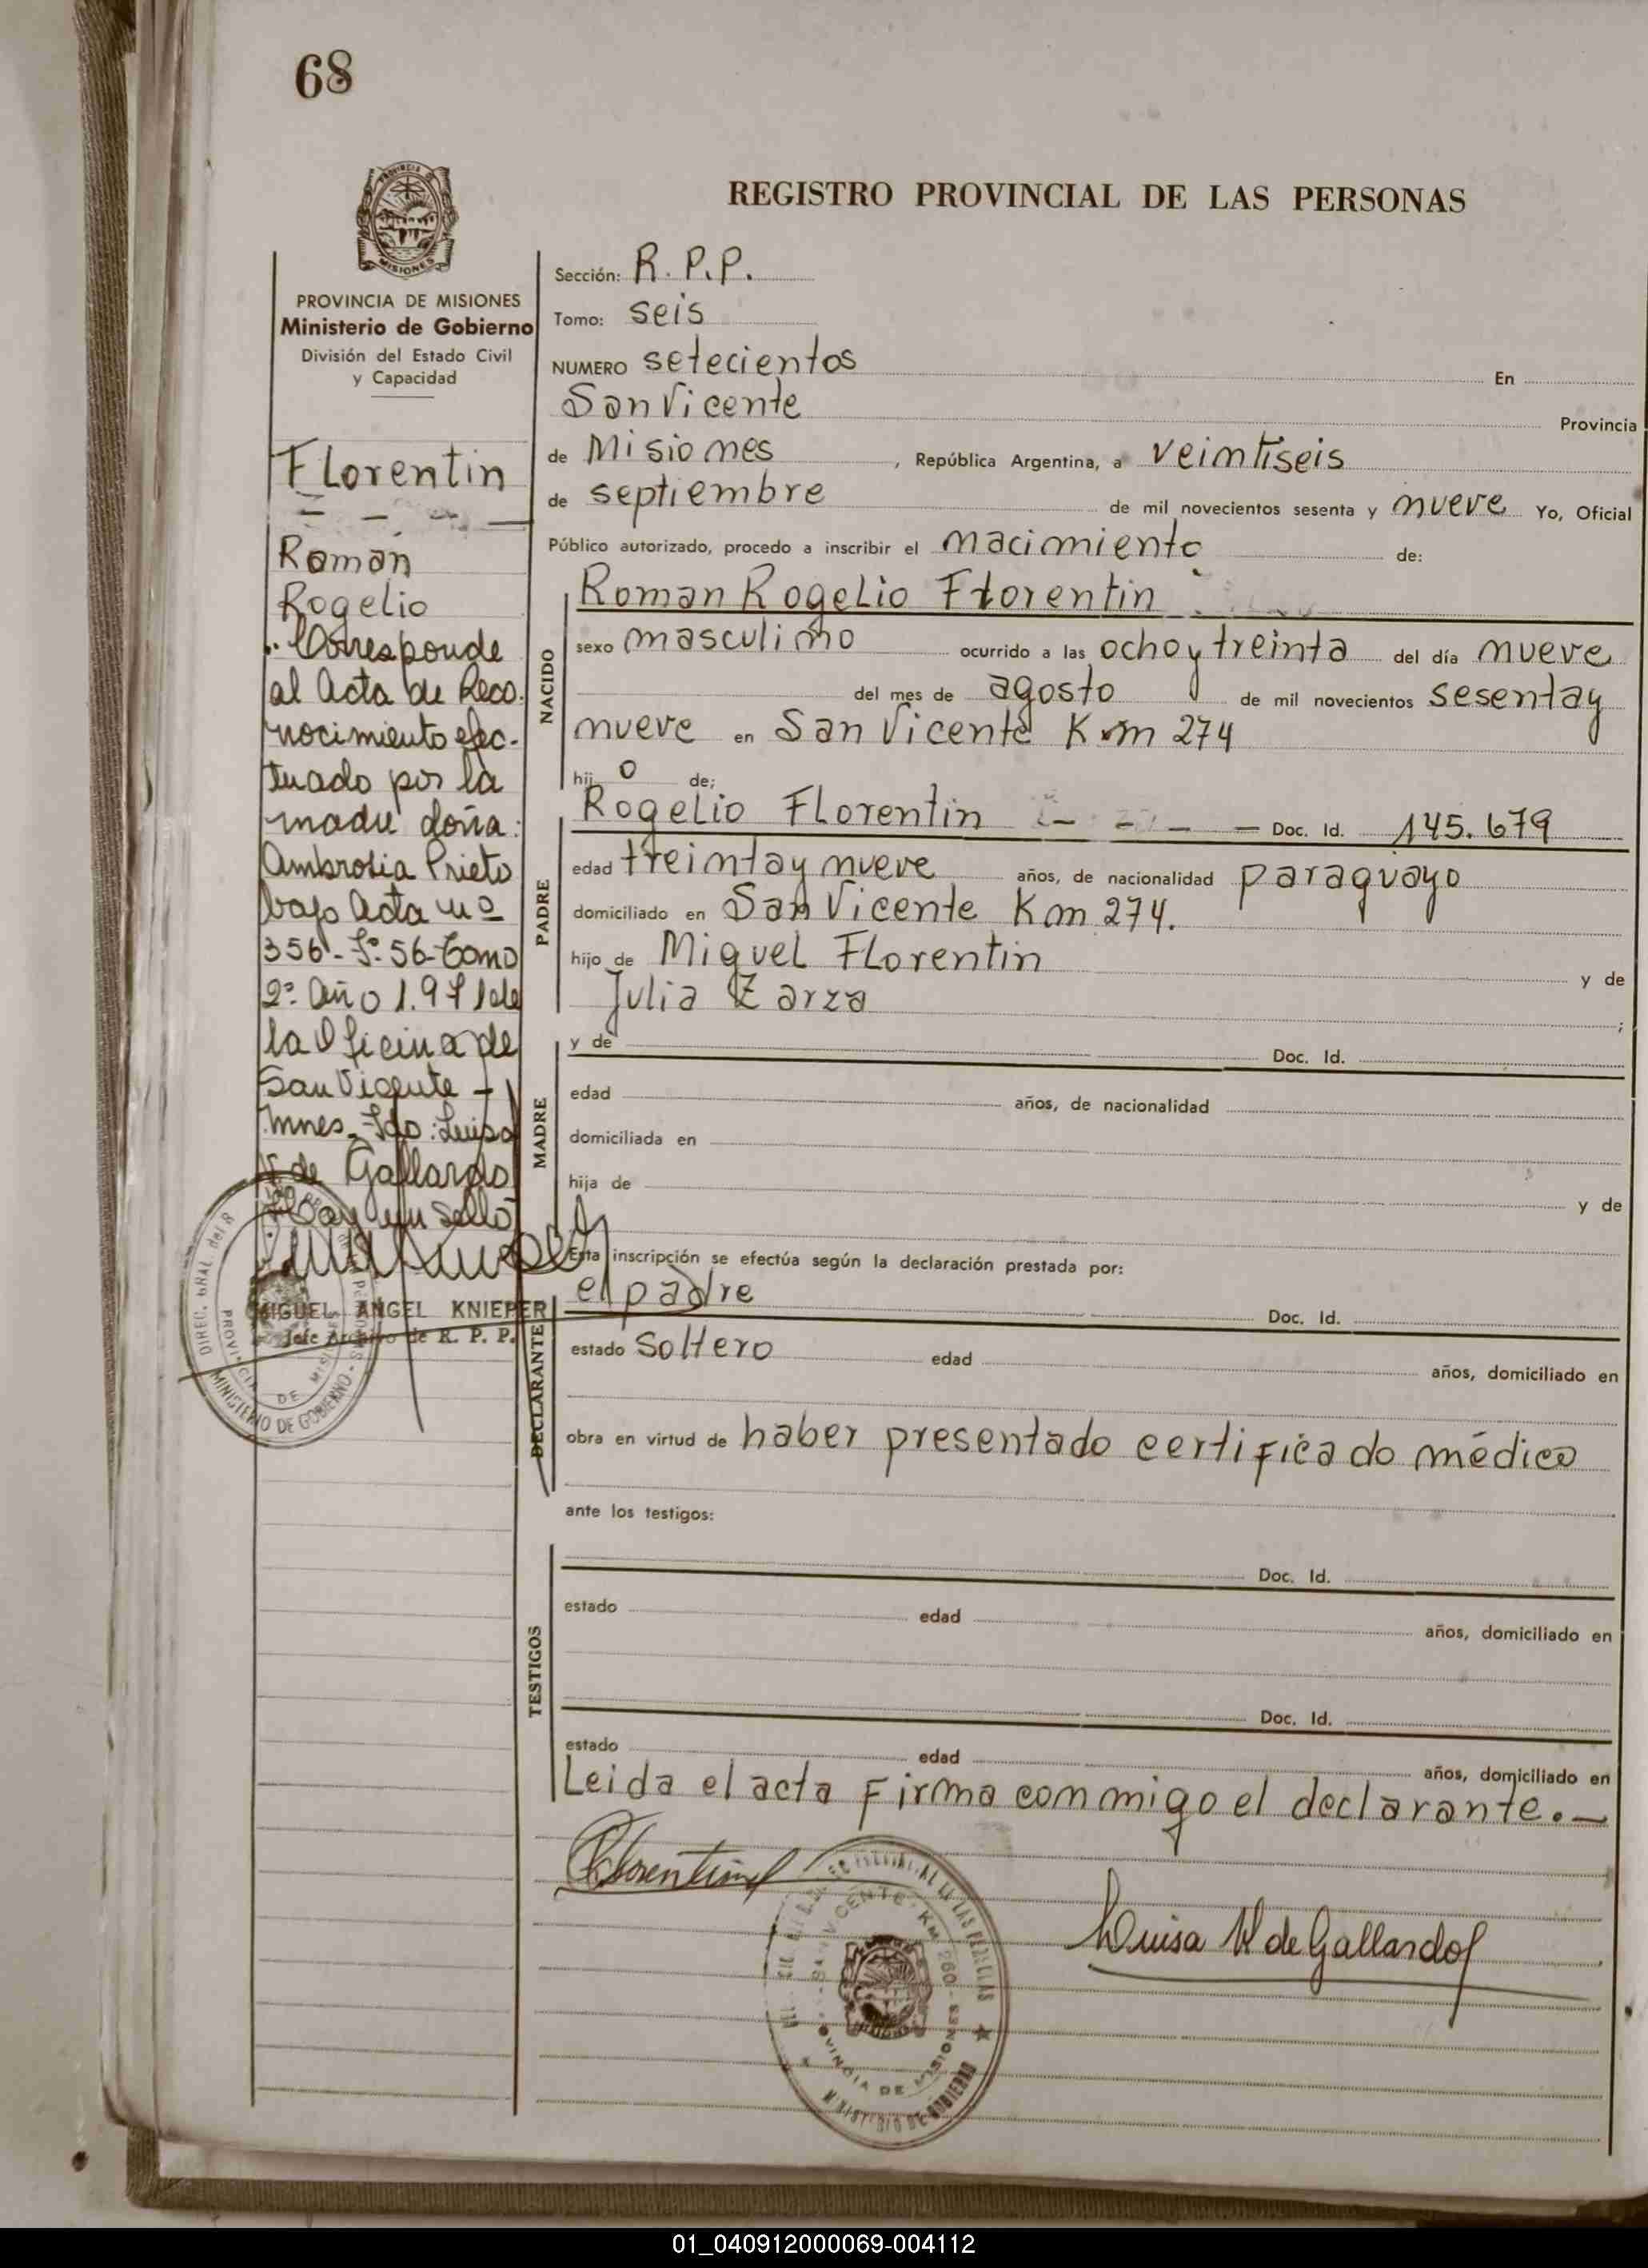 68
REGISTRO PROVINCIAL DE LAS PERSONAS
PROVINCIA DE MISIONES
Ministerio de Gobierno
División del Estado Civil
y Capacidad
Florentin
Roman
Rogelio
Corresponde
al Acta de Reco-
nocimiento efec-
tuado por la
madre doña:
Ambrosia Prieto
bajo Acta nº
356 - Fº 56 - Tomo
2º Año 1.971 de
la Oficina de
San Vicente -
Mnes. Fdo: Luisa
V. de Gallardo
Hay un sello
MIGUEL ANGEL KNIEPER
Jefe Archivo de R. P. P.
DIREC. GRAL del R
PROVINCIA DE MISIONES
MINISTERIO DE GOBIERNO
Sección: R. P. P.
Tomo: seis
NUMERO setecientos En
San Vicente Provincia
de Misiones , República Argentina, a veintiseis
de septiembre de mil novecientos sesenta y nueve Yo, Oficial
Público autorizado, procedo a inscribir el nacimiento de:
NACIDO
Roman Rogelio Florentin
sexo masculino ocurrido a las ocho y treinta del día nueve
del mes de agosto de mil novecientos sesenta y
nueve en San Vicente Km 274
hij o de:
PADRE
Rogelio Florentin — — Doc. Id. 145.679
edad treinta y nueve años, de nacionalidad paraguayo
domiciliado en San Vicente Km 274.
hijo de Miguel Florentin y de
Julia Zarza ;
MADRE
y de Doc. Id.
edad años, de nacionalidad
domiciliada en
hija de y de
Esta inscripción se efectúa según la declaración prestada por:
DECLARANTE
el padre Doc. Id.
estado soltero edad años, domiciliado en
obra en virtud de haber presentado certificado médico
ante los testigos:
TESTIGOS
Doc. Id.
estado edad años, domiciliado en
Doc. Id.
estado edad años, domiciliado en
Leida el acta firma conmigo el declarante.—
Florentin
SAN VICENTE - KM 260 - MISIONES
PROVINCIA DE MISIONES
MINISTERIO DE GOBIERNO
Luisa V. de Gallardo
01_040912000069-004112